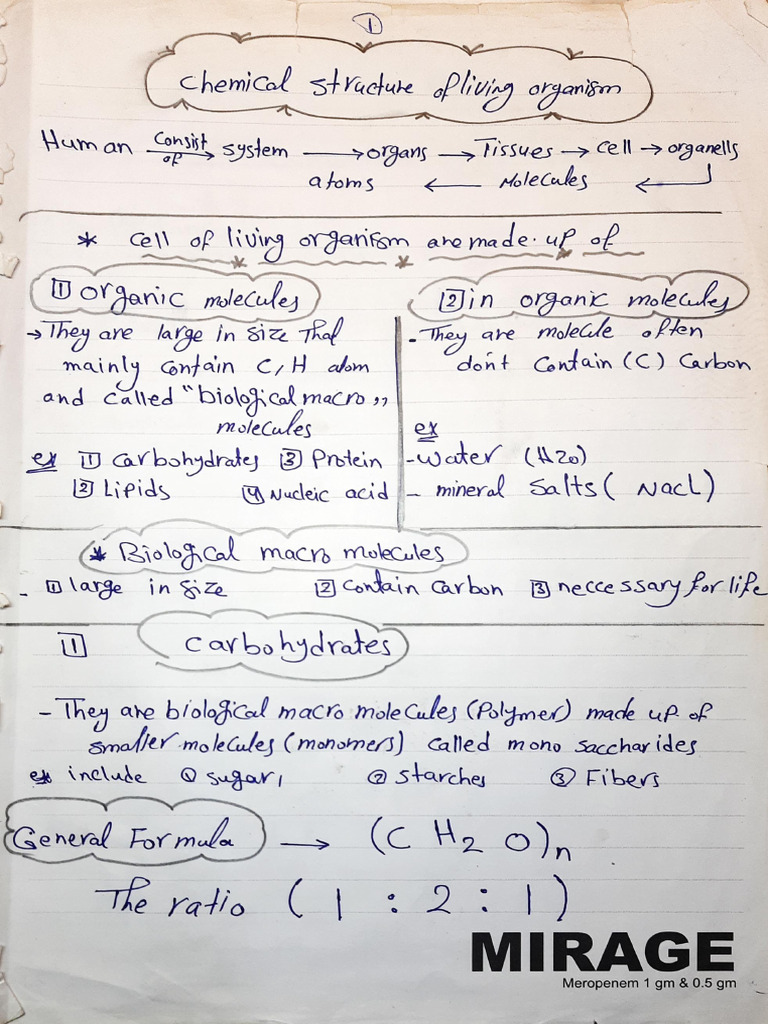 1
Chemical structure of living organism
Human consist of → system → organs → Tissues → cell → organells
atoms ← Molecules ←
* cell of living organism are made up of
1 organic molecules
→ They are large in size That
mainly contain C, H atom
and called "biological macro"
molecules
ex 1 carbohydrates 3 Protein
2 Lipids 4 Nucleic acid
2 in organic molecules
- They are molecule often
don't contain (C) Carbon
ex
- water (H2O)
- mineral salts (NaCL)
* Biological macro molecules
- 1 large in size 2 contain carbon 3 neccessary for life
1 carbohydrates
- They are biological macro molecules (Polymer) made up of
smaller molecules (monomers) called mono saccharides
ex include 1 sugar, 2 starches 3 Fibers
General Formula → (C H2 O)n
The ratio (1 : 2 : 1)
MIRAGE
Meropenem 1 gm & 0.5 gm